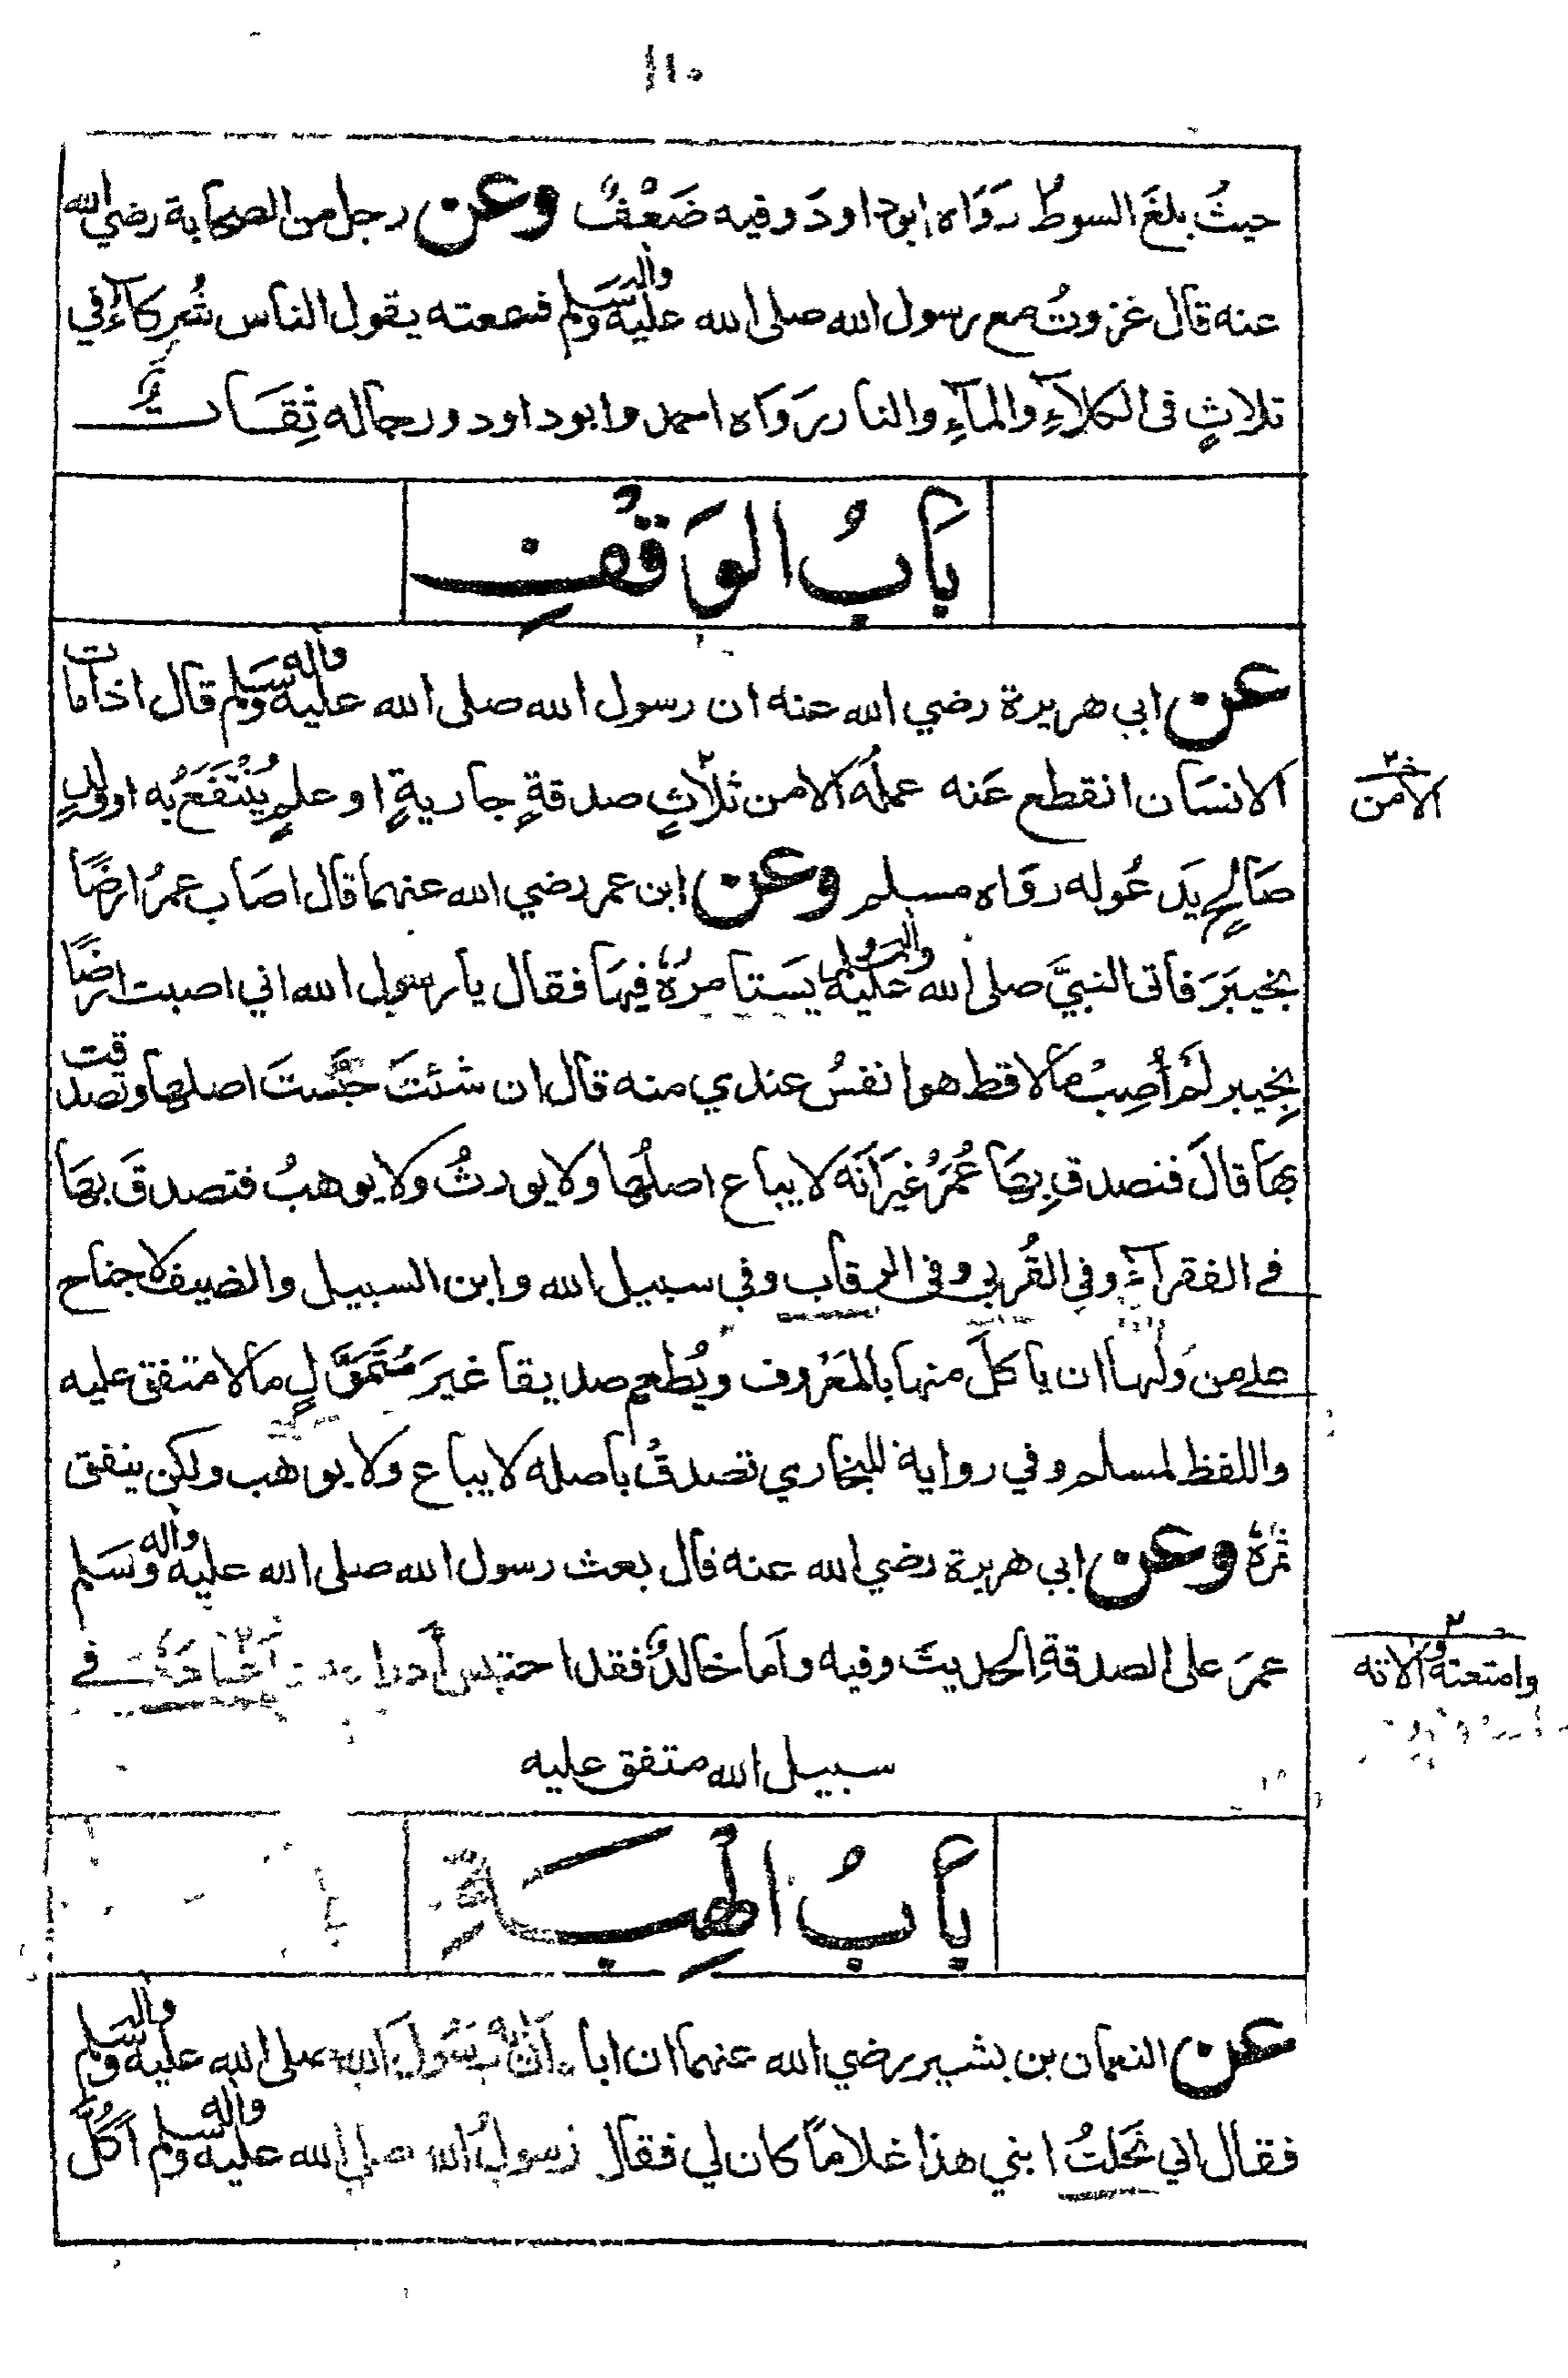 ١١٠
حيثُ بلغَ السوطُ رَوَاه ابوداودَ وفيه ضَعْفٌ وعن رجل من الصحابة رضي الله
عنه قال غزوتُ مع رسول الله صلى الله عليه واله وسلم فسمعته يقول الناس شُركآءُ في
ثلاثٍ فى الكلآءِ والمآءِ والنار رَوَاه احمد وابوداود ورجاله ثِقَاتٌ
بَابُ الوَقْفِ
عن ابي هريرة رضي الله عنه ان رسول الله صلى الله عليه واله وسلم قال اذا مات
الانسَان انقطع عَنه عملُه الا من ثلاثٍ صدقةٍ جاريةٍ او علمٍ يُنْتَفَعُ به او ولدٍ
الا من
صَالحٍ يَدعُوله رَوَاه مسلم وعن ابن عمر رضي الله عنهما قال اصَاب عمرُ ارضًا
بخيبَرَ فاتى النبيَّ صلى الله عليه واله وسلم يَستامرُهُ فيهَا فقال يا رسول الله اني اصبت ارضًا
بِخيبر لَم أُصِبْ مالا قط هو انفسُ عندي منه قال ان شئتَ حبَّستَ اصلها وتصدقت
بهَا قالَ فتصدق بِهَا عُمَرُ غيرَ انَه لا يباع اصلُها ولا يورثُ ولا يوهبُ فتصدقَ بهَا
في الفقرآءِ وفي القُربي وفى الرقاب وفي سبيل الله وابن السبيل والضيف لا جناح
على من وَليها ان ياكلَ منها بالمَعْروف ويُطعم صديقا غيرَ مُتَمَوَّلٍ مالا متفق عليه
واللفظ لمسلم وفي رواية للبخاري تصدقُ باصله لا يباع ولا يوهب ولكن ينفق
ثمرُهُ وعن ابي هريرة رضي الله عنه قال بعث رسول الله صلى الله عليه واله وسَلم
عمرَ على الصدقةِ الحديثَ وفيه وآما خالدٌ فقد احتبس في
وامتعته وآلاته
سبيل الله متفق عليه
بَابُ الهِبَةِ
عن النعمان بن بشير رضي الله عنهما ان اباه رَسُولَ الله صلى الله عليه واله وسلم
فقال اني نَحَلتُ ابني هذا غلامًا كان لي فقال رسولُ الله صلي الله عليه واله وسلم أَكُلَّ